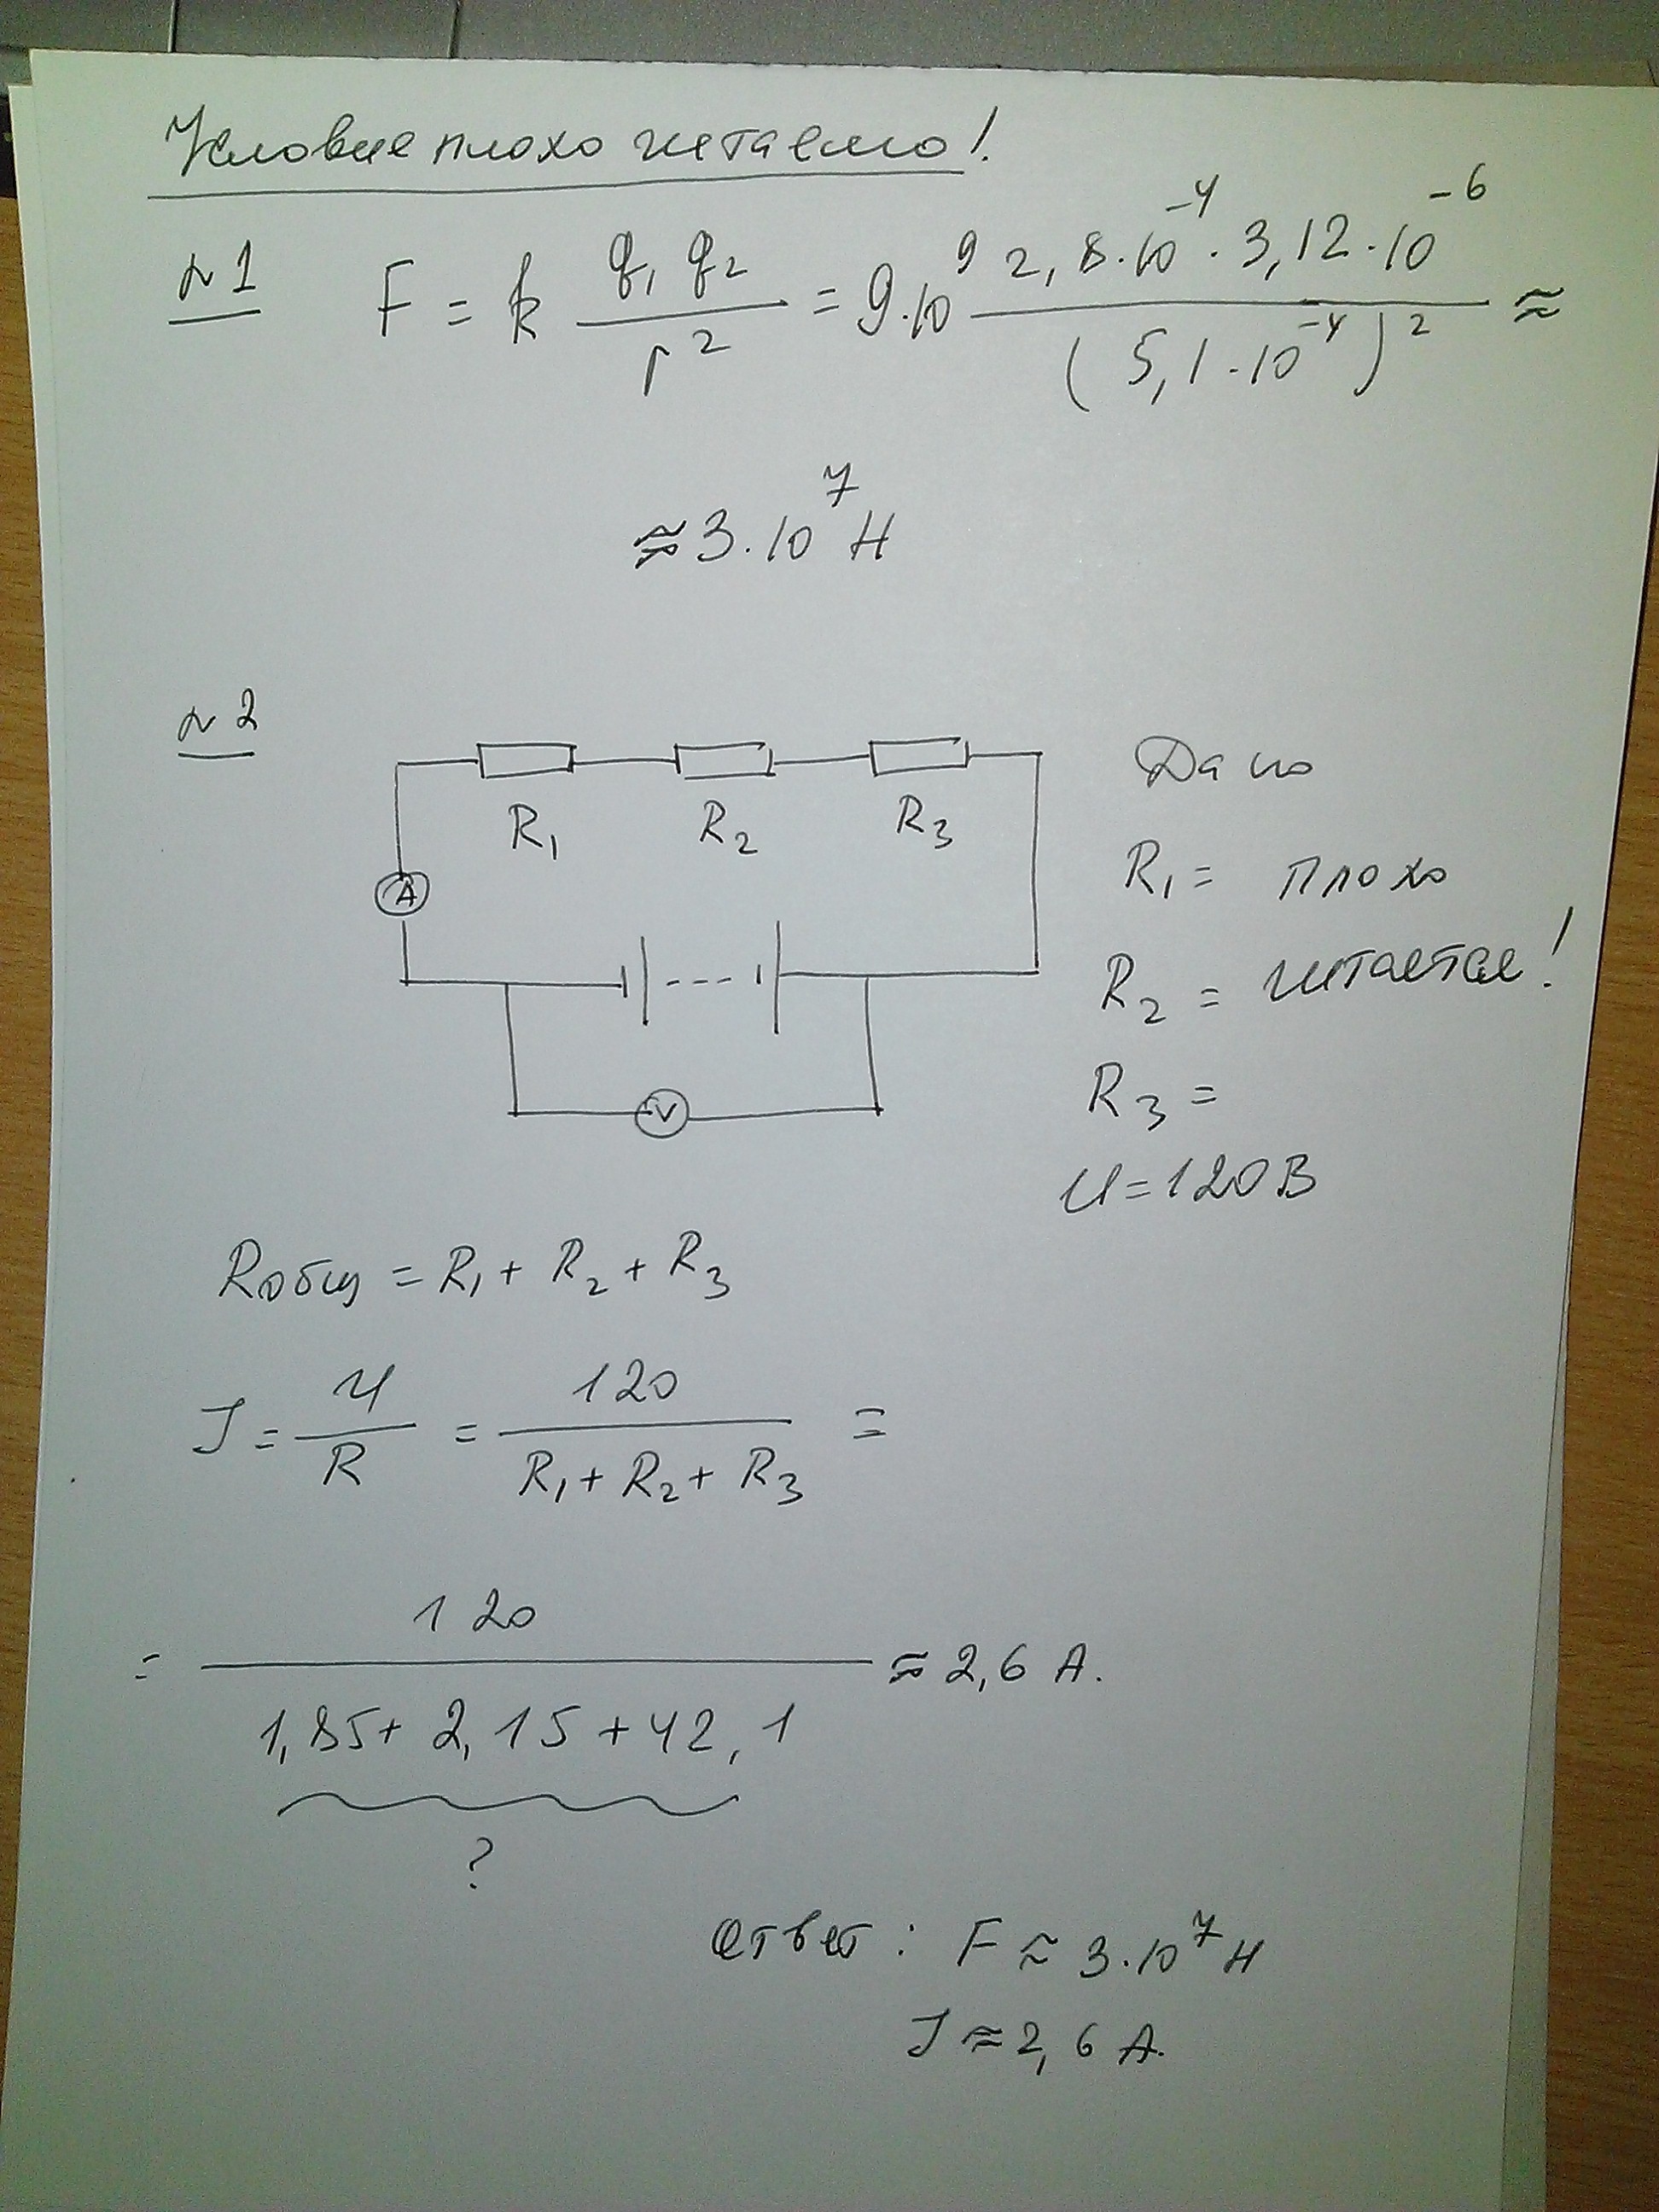 Условие плохо читаемо!
№1 F = k q₁ q₂ / r² = 9·10⁹ 2,8·10⁻⁴ · 3,12·10⁻⁶ / (5,1·10⁻⁴)² ≈
≈ 3·10⁷ Н
№2
R₁ R₂ R₃
A
V
Дано
R₁ = плохо
R₂ = читается!
R₃ =
U = 120 В
Rобщ = R₁ + R₂ + R₃
J = U / R = 120 / R₁ + R₂ + R₃ =
= 120 / 1,85 + 2,15 + 42,1 ≈ 2,6 А.
?
Ответ: F ≈ 3·10⁷ Н
J ≈ 2,6 А.